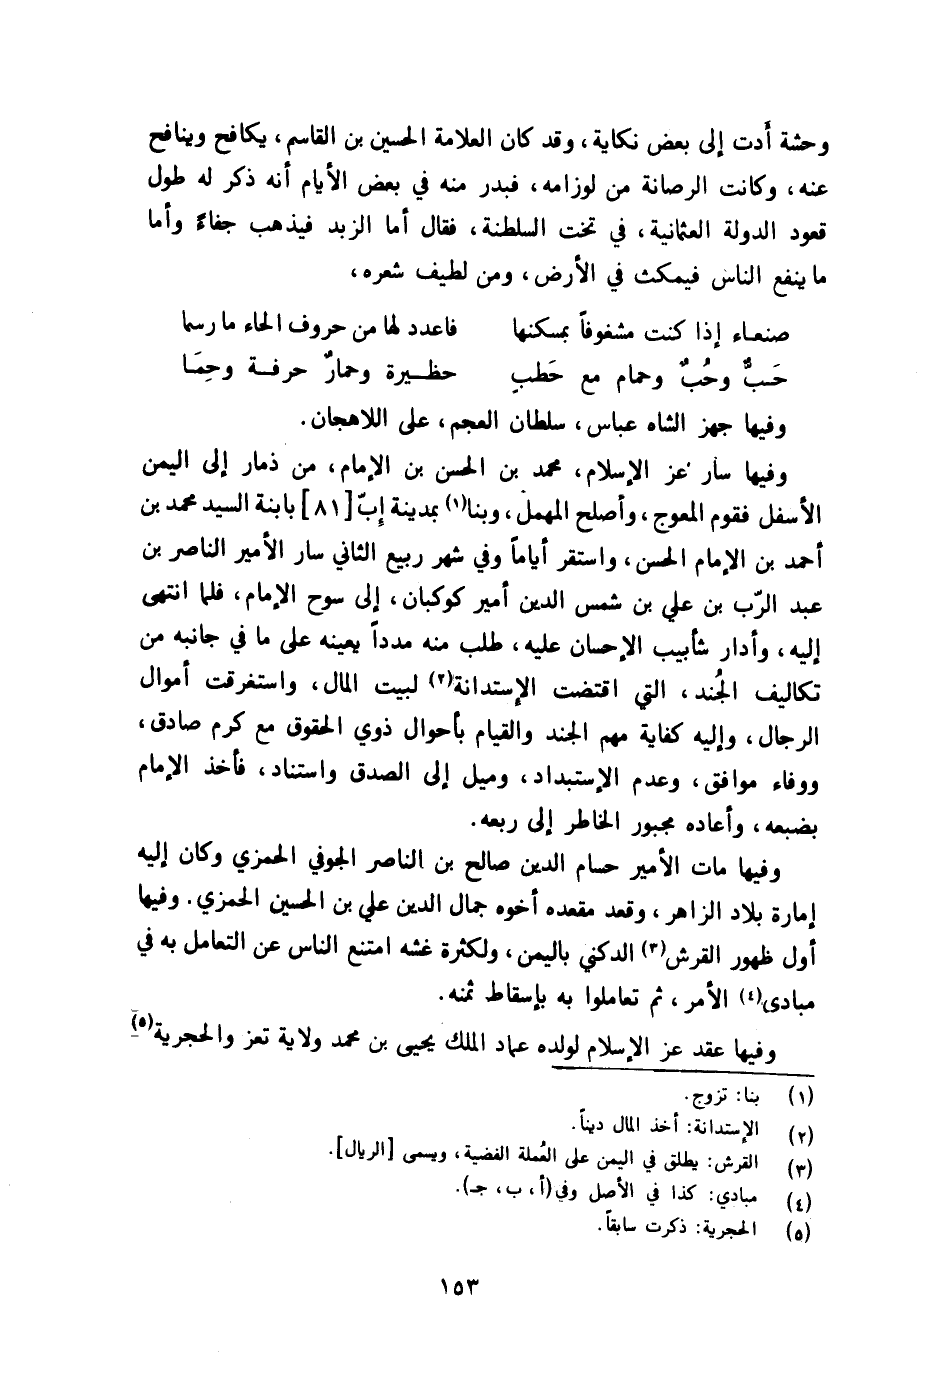 وحشة أَدت إلى بعض نكاية، وقد كان العلامة الحسين بن القاسم، يكافح وينافح
عنه، وكانت الرصانة من لوزامه، فبدر منه في بعض الأيام أنه ذكر له طول
قعود الدولة العثمانية، في تخت السلطنة، فقال أما الزبد فيذهب جفاءً وأما
ما ينفع الناس فيمكث في الأرض، ومن لطيف شعره،
صنعاء إذا كنت مشغوفاً بمسكنها فاعدد لها من حروف الحاء ما رسما
حَبٌّ وحُبٌ وحمام مع حَطبٍ حظيرة وحمارٌ حرفة وحِمَا
وفيها جهز الشاه عباس، سلطان العجم، على اللاهجان.
وفيها سار عز الإسلام، محمد بن الحسن بن الإمام، من ذمار إلى اليمن
الأسفل فقوم المعوج، وأصلح المهمل، وبنا(١) بمدينة إبّ [٨١] بابنة السيد محمد بن
أحمد بن الإمام الحسن، واستقر أياماً وفي شهر ربيع الثاني سار الأمير الناصر بن
عبد الرّب بن علي بن شمس الدين أمير كوكبان، إلى سوح الإمام، فلما انتهى
إليه، وأدار شأبيب الإحسان عليه، طلب منه مدداً يعينه على ما في جانبه من
تكاليف الجُند، التي اقتضت الإستدانة(٢) لبيت المال، واستغرقت أموال
الرجال، وإليه كفاية مهم الجند والقيام بأحوال ذوي الحقوق مع كرم صادق،
ووفاء موافق، وعدم الإستبداد، وميل إلى الصدق واستناد، فأخذ الإمام
بضبعه، وأعاده مجبور الخاطر إلى ربعه.
وفيها مات الأمير حسام الدين صالح بن الناصر الجوفي الحمزي وكان إليه
إمارة بلاد الزاهر، وقعد مقعده أخوه جمال الدين علي بن الحسين الحمزي. وفيها
أول ظهور القرش(٣) الدكني باليمن، ولكثرة غشه امتنع الناس عن التعامل به في
مبادى(٤) الأمر، ثم تعاملوا به بإسقاط ثمنه.
وفيها عقد عز الإسلام لولده عماد الملك يحيى بن محمد ولاية تعز والحجرية(٥)
(١) بنا: تزوج.
(٢) الإستدانة: أخذ المال ديناً.
(٣) القرش: يطلق في اليمن على العُملة الفضية، ويسمى [الريال].
(٤) مبادي: كذا في الأصل وفي (أ، ب، جـ).
(٥) الحجرية: ذكرت سابقاً.
١٥٣